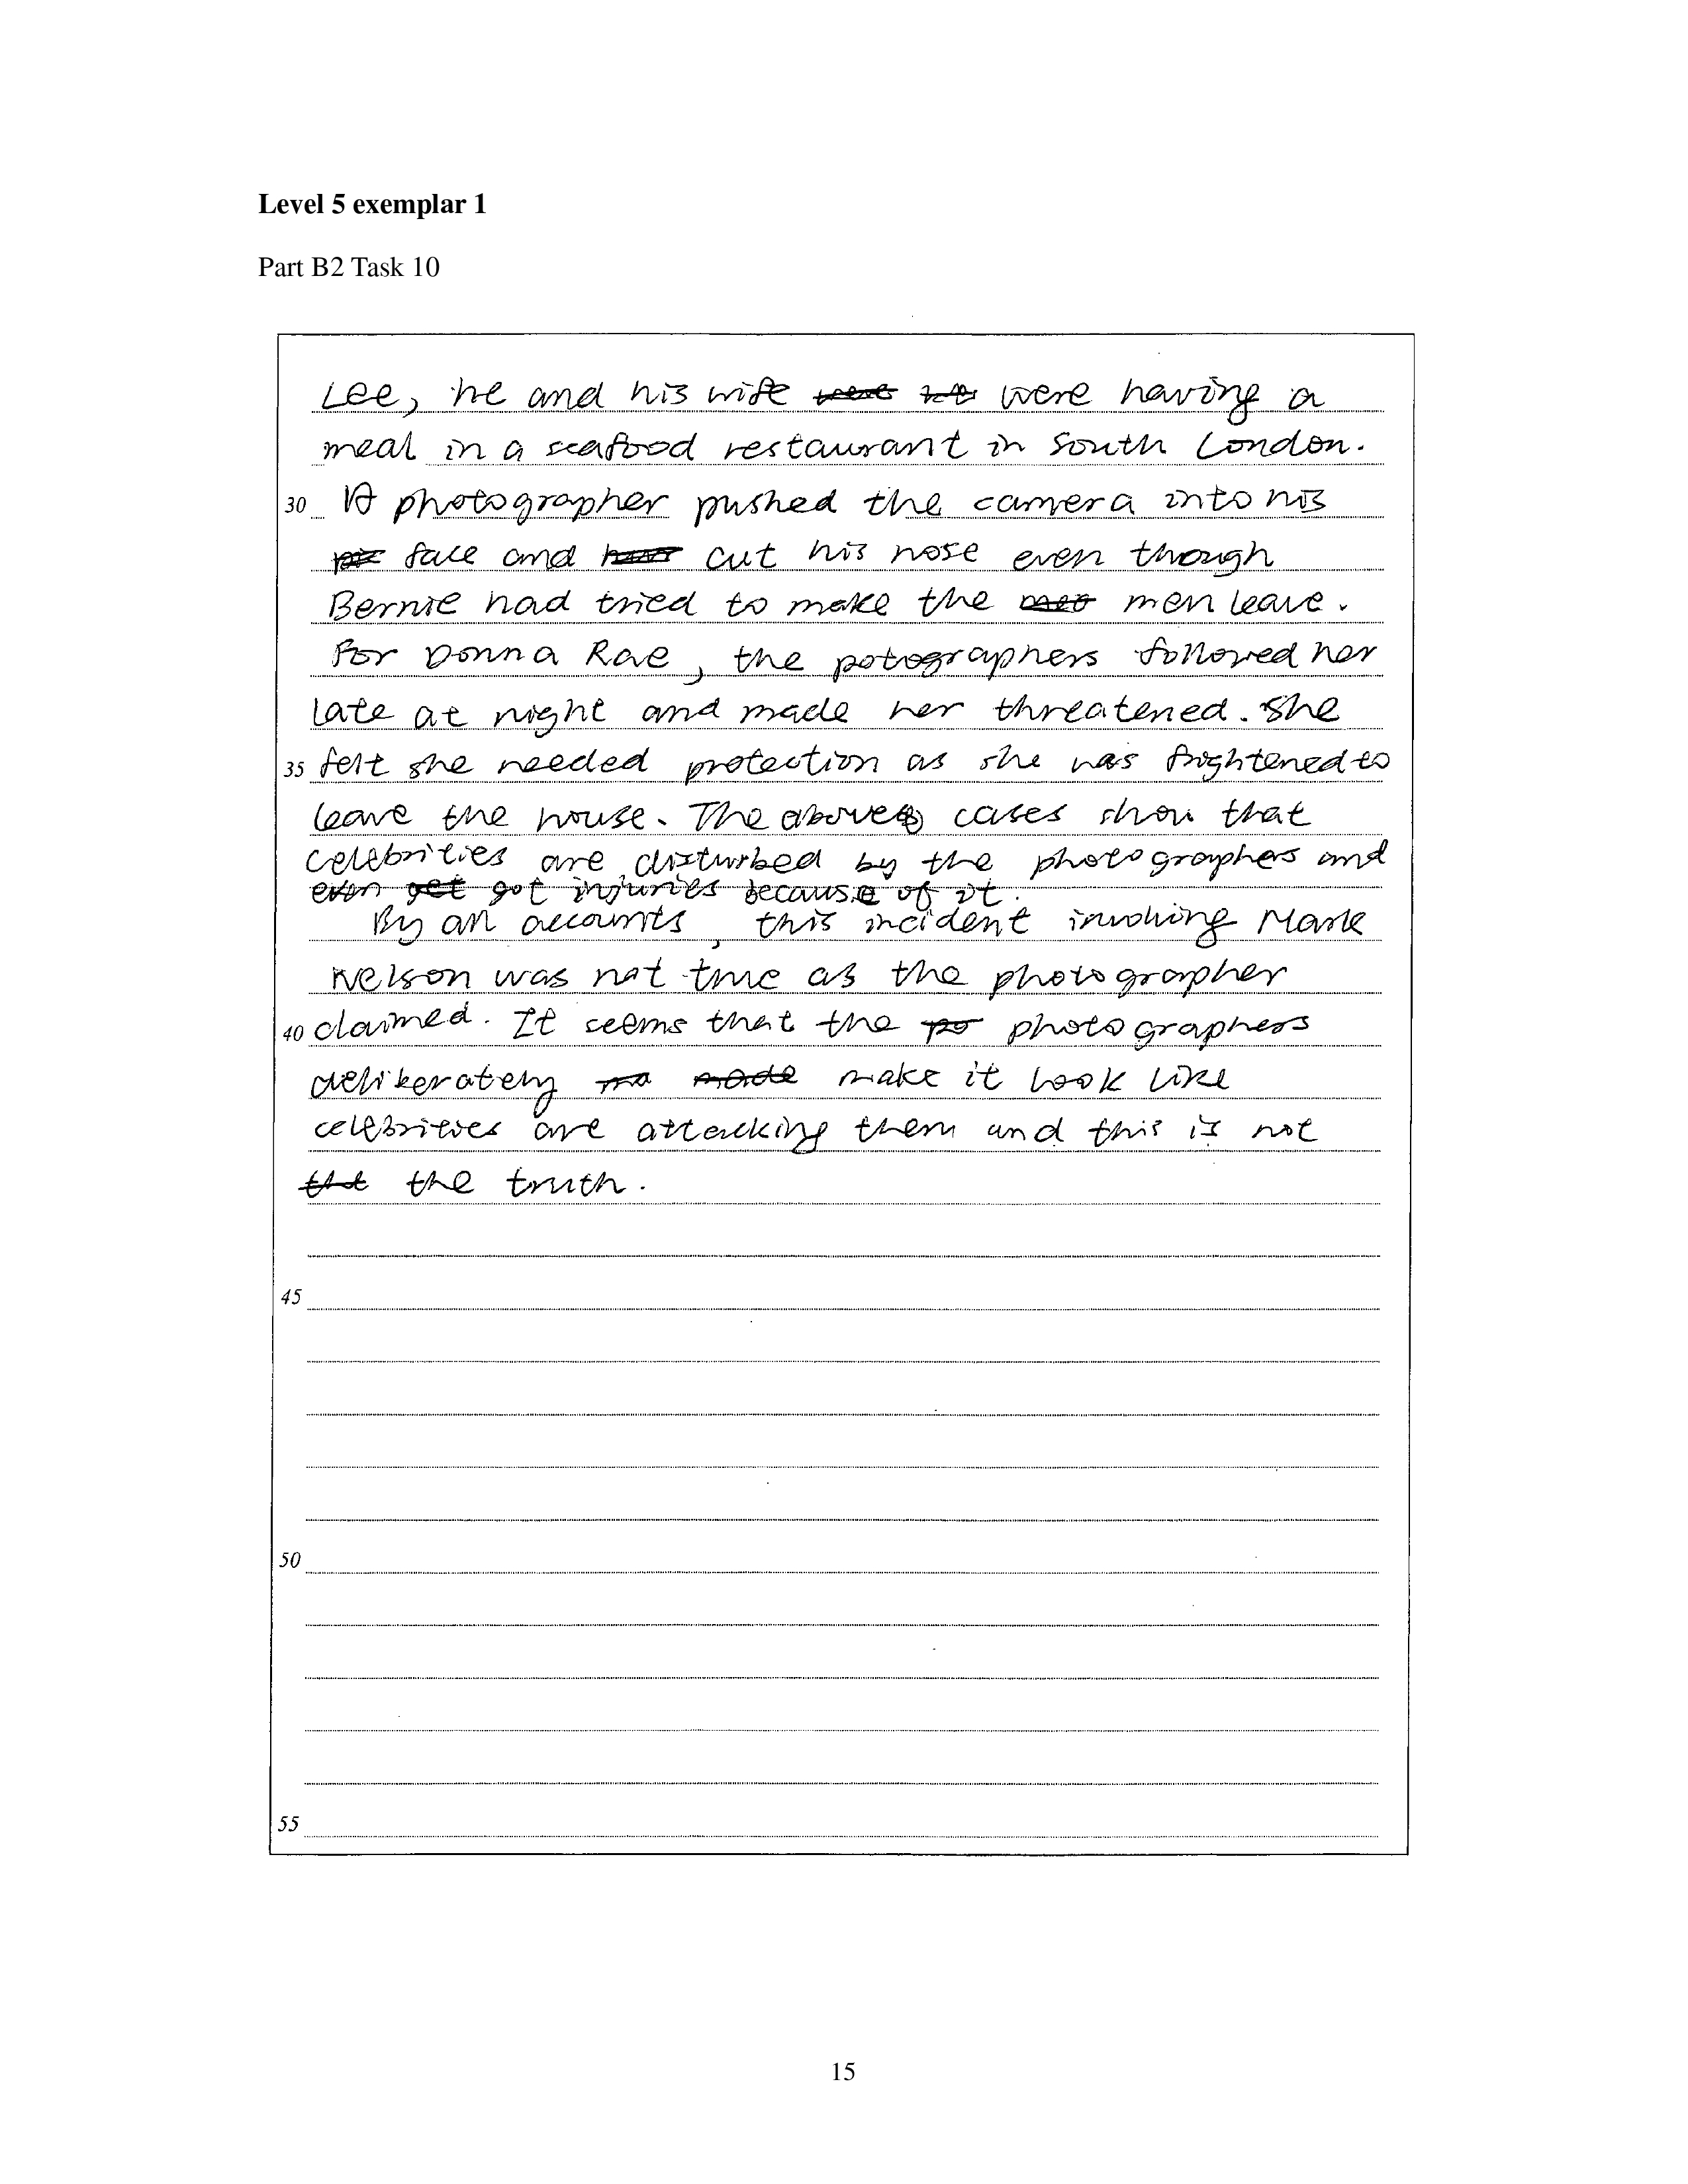 Level 5 exemplar 1
Part B2 Task 10
Lee, he and his wife were having a
meal in a seafood restaurant in South London.
30 A photographer pushed the camera into his
face and cut his nose even though
Bernie had tried to make the men leave.
For Donna Rae, the potographers followed her
late at night and made her threatened. She
35 felt she needed protection as she was frightened to
leave the house. The above cases show that
celebrities are disturbed by the photographers and
even got injuries because of it.
By all accounts, this incident involving Mark
Nelson was not true as the photographer
40 claimed. It seems that the photographers
deliberately make it look like
celebrities are attacking them and this is not
the truth.
45
50
55
15